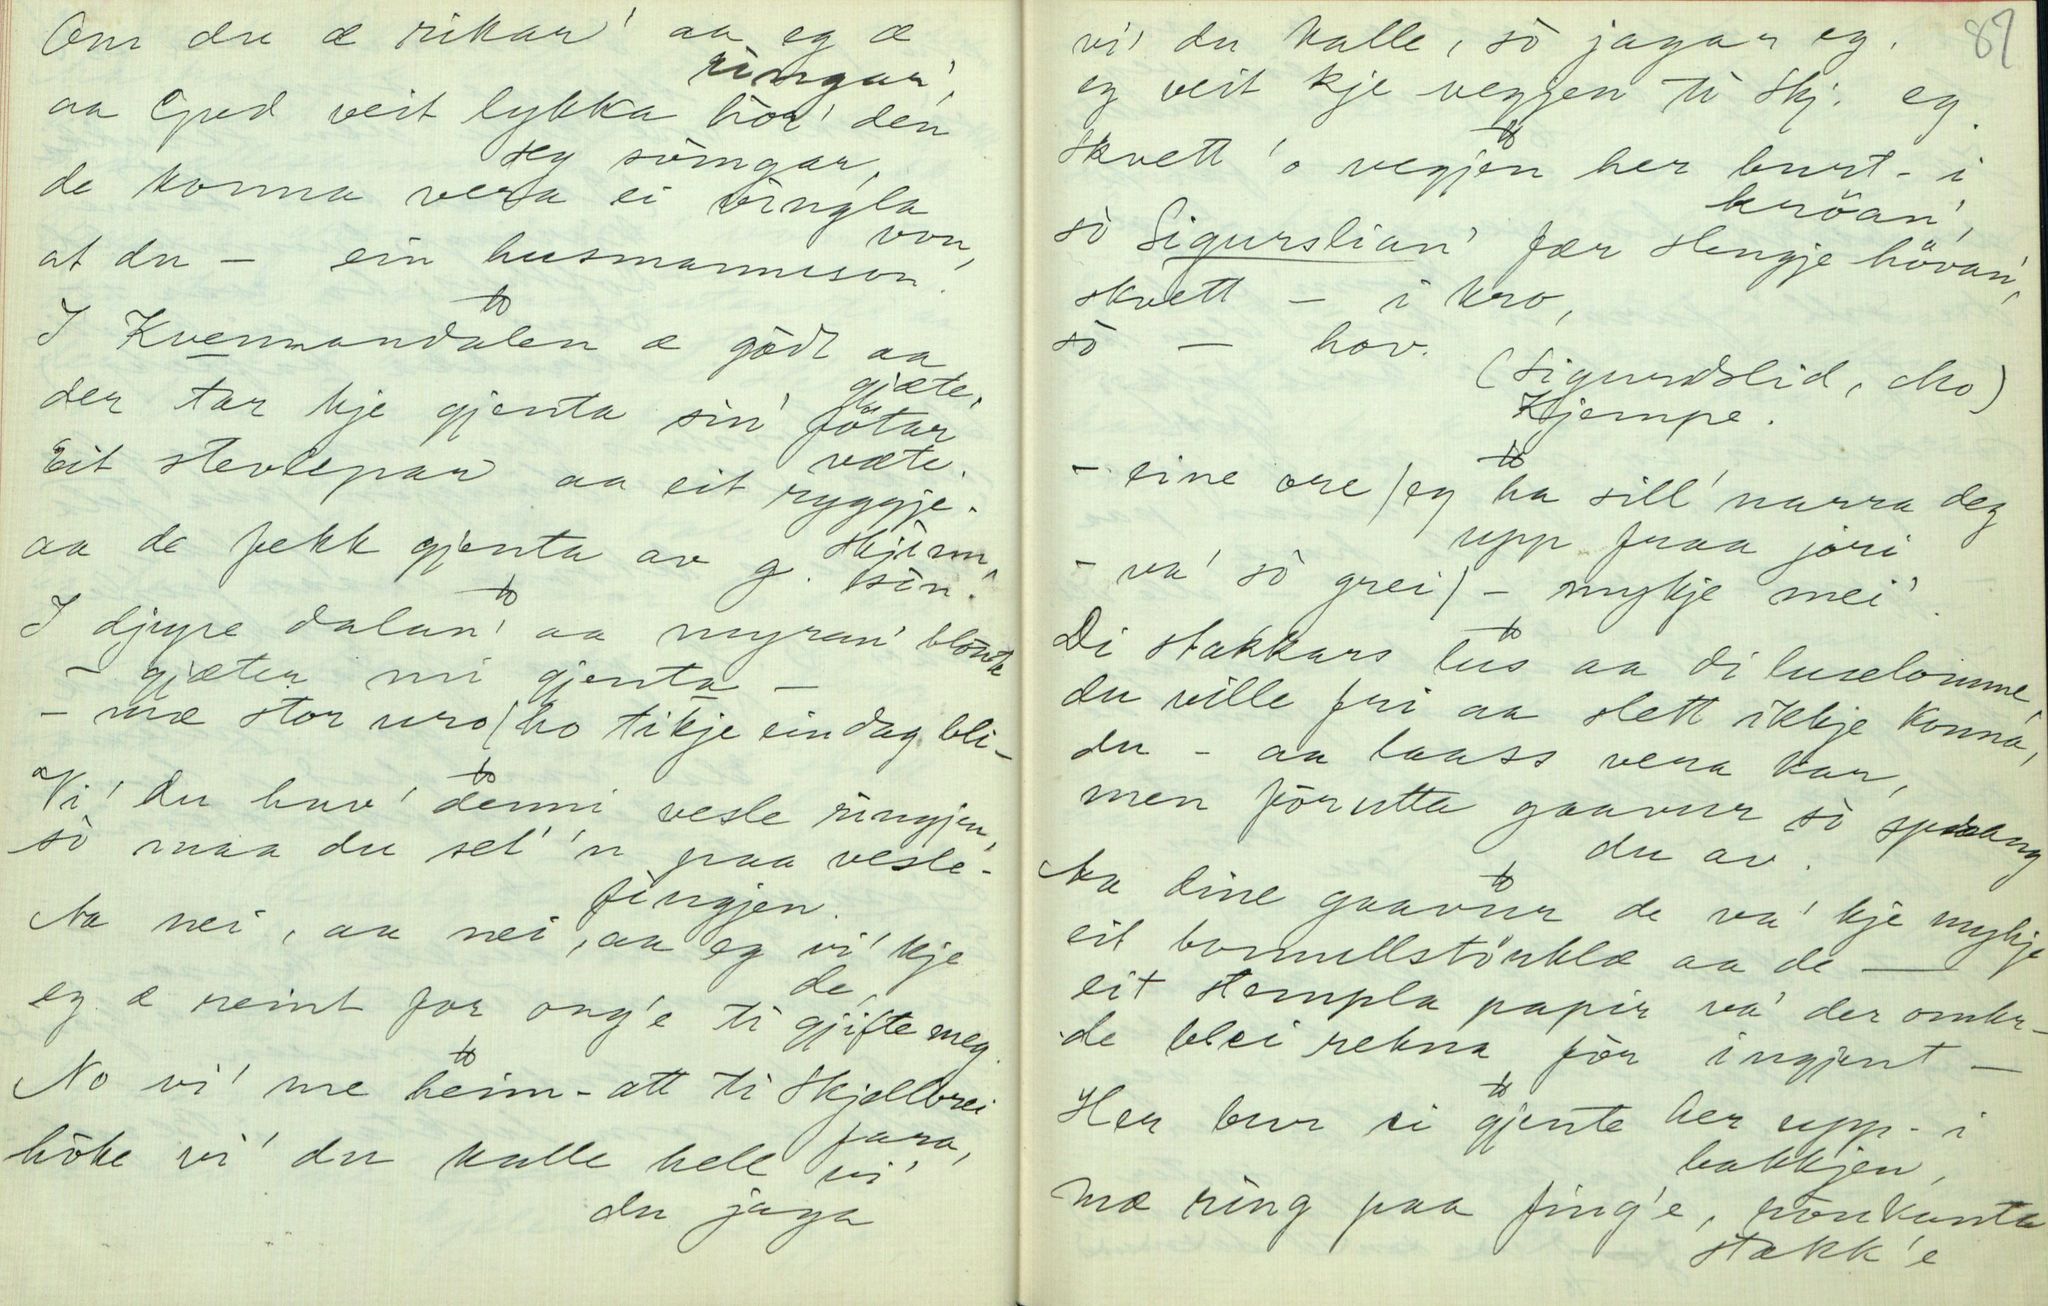 Om du æ rikar' aa eg æ
ringar',
aa Gud veit lykka hòr' den
seg svingar,
de konna vera ei vingla
von,
at du - ein husmannson.
I Kvennandalen æ godt aa
gjæte,
der tar kje gjenta sin' fötar
væte.
Eit stevlepar aa eit ryggje-
skjinn,
aa de fekk gjenta av g. sin.
I djupe dalan' aa myran' blöute
- gjæter mi gjenta -
- mæ stor uro / ho tikje ein dag bli -
Vi' du hav' denni vesle ringjen,
sò maa du set' 'n paa vesle-
fingjen.
Aa nei, aa nei, aa eg vi' kje
de,
eg æ reint for ong'e ti gjifte meg.
No vi' me heim-att ti Skjellbrei
fara,
höke vi' du kalle hell vi'
du jaga
87
vi' du kalle, sò jagar eg.
eg veit kje veggjen ti Skj. eg.
Skvett 'o vegjen her burt-i
kröan',
sò Sigurslian' fær slengje hövan',
skvett - i kro,
sò - hov.
(Sigurdslid, Mo)
Kjempe.
- eine ore / eg ha sill' narra deg
upp fraa jori
- va' sò grei / - mykje mei'
Di stakkars lus aa di luselomme,
du ville fri aa slett ikkje konna,
du - aa laass vera kar,
men förutta gaavur sò sprang
du av.
Aa dine gaavur de va' kje mykje
eit bomullstörklæ aa de -
eit stempla papir va' der omkr-
de blei rekna för ingjent -
Her bur ei gjente her upp-i
bakkjen,
mæ ring paa fing'e, rönkanta
stakk'e